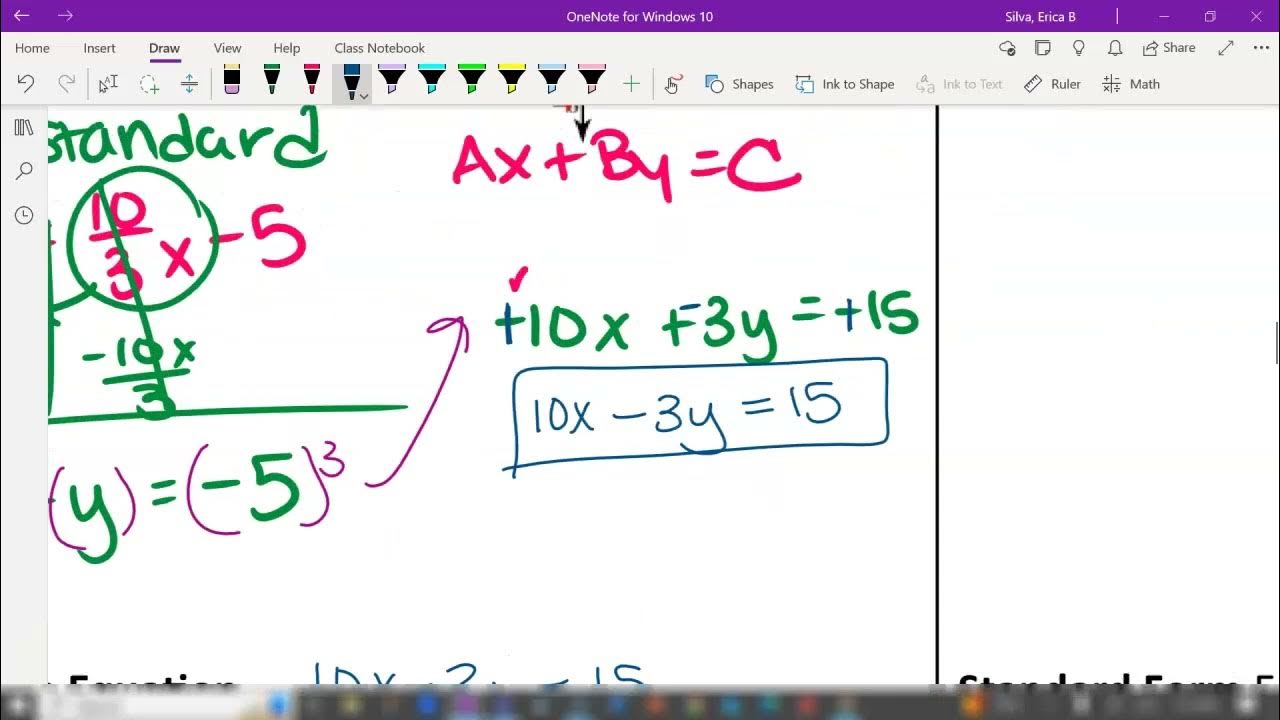 OneNote for Windows 10
Silva, Erica B
Home Insert Draw View Help Class Notebook
Share
Shapes Ink to Shape Ink to Text Ruler Math
standard
Ax + By = C
10/3 x - 5
-10x/3
+10x +-3y = +15
10x - 3y = 15
(y) = (-5)3
Equation 10x - 3y = 15
Standard Form